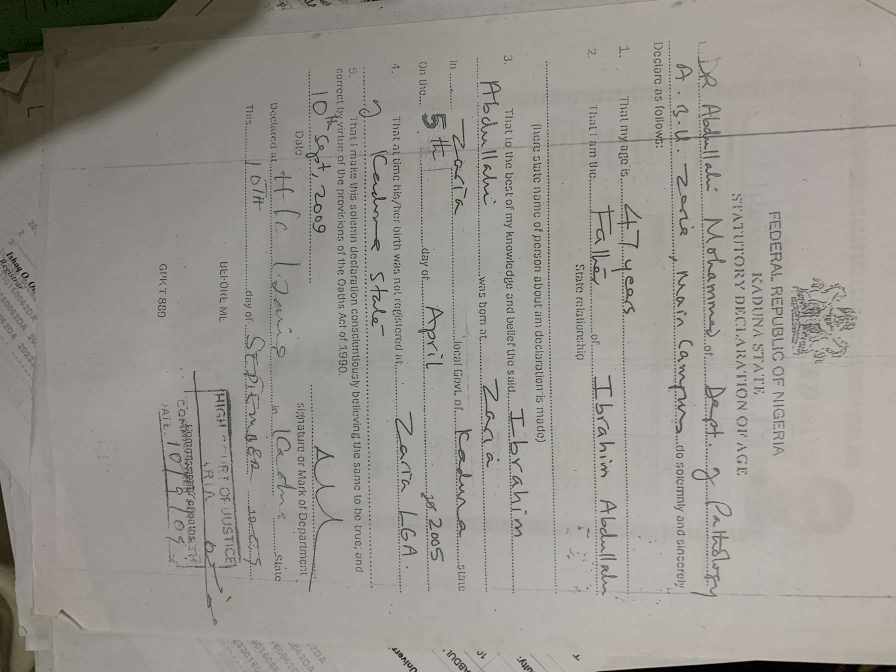 FEDERAL REPUBLIC OF NIGERIA
KADUNA STATE
STATUTORY DECLARATION OF AGE
I, DR Abdullahi Mohammed of Dept. of Pathology
A.B.U. Zaria, Main Campus do solemnly and sincerely
Declare as follows:
1. That my age is 47 years
2. That I am the Father of Ibrahim Abdullahi
State relationship
(here state name of person about am declaration is made)
3. That to the best of my knowledge and belief the said Ibrahim
Abdullahi was born at Zaria
in Zaria local Govt. of Kaduna state
On the 5th day of April 2005
4. That at time his/her birth was not registered at Zaria LGA.
of Kaduna State
5. That I make this solemn declaration conscientiously believing the same to be true; and
correct by virtue of the provisions of the Oaths Act of 1990.
10th Sept, 2009
Date
signature or Mark of Department
Declared at in Kaduna state
This 10TH day of SEPTEMBER
BEFORE ME
HIGH COURT OF JUSTICE
GPKT 880
DATE 10/9/09